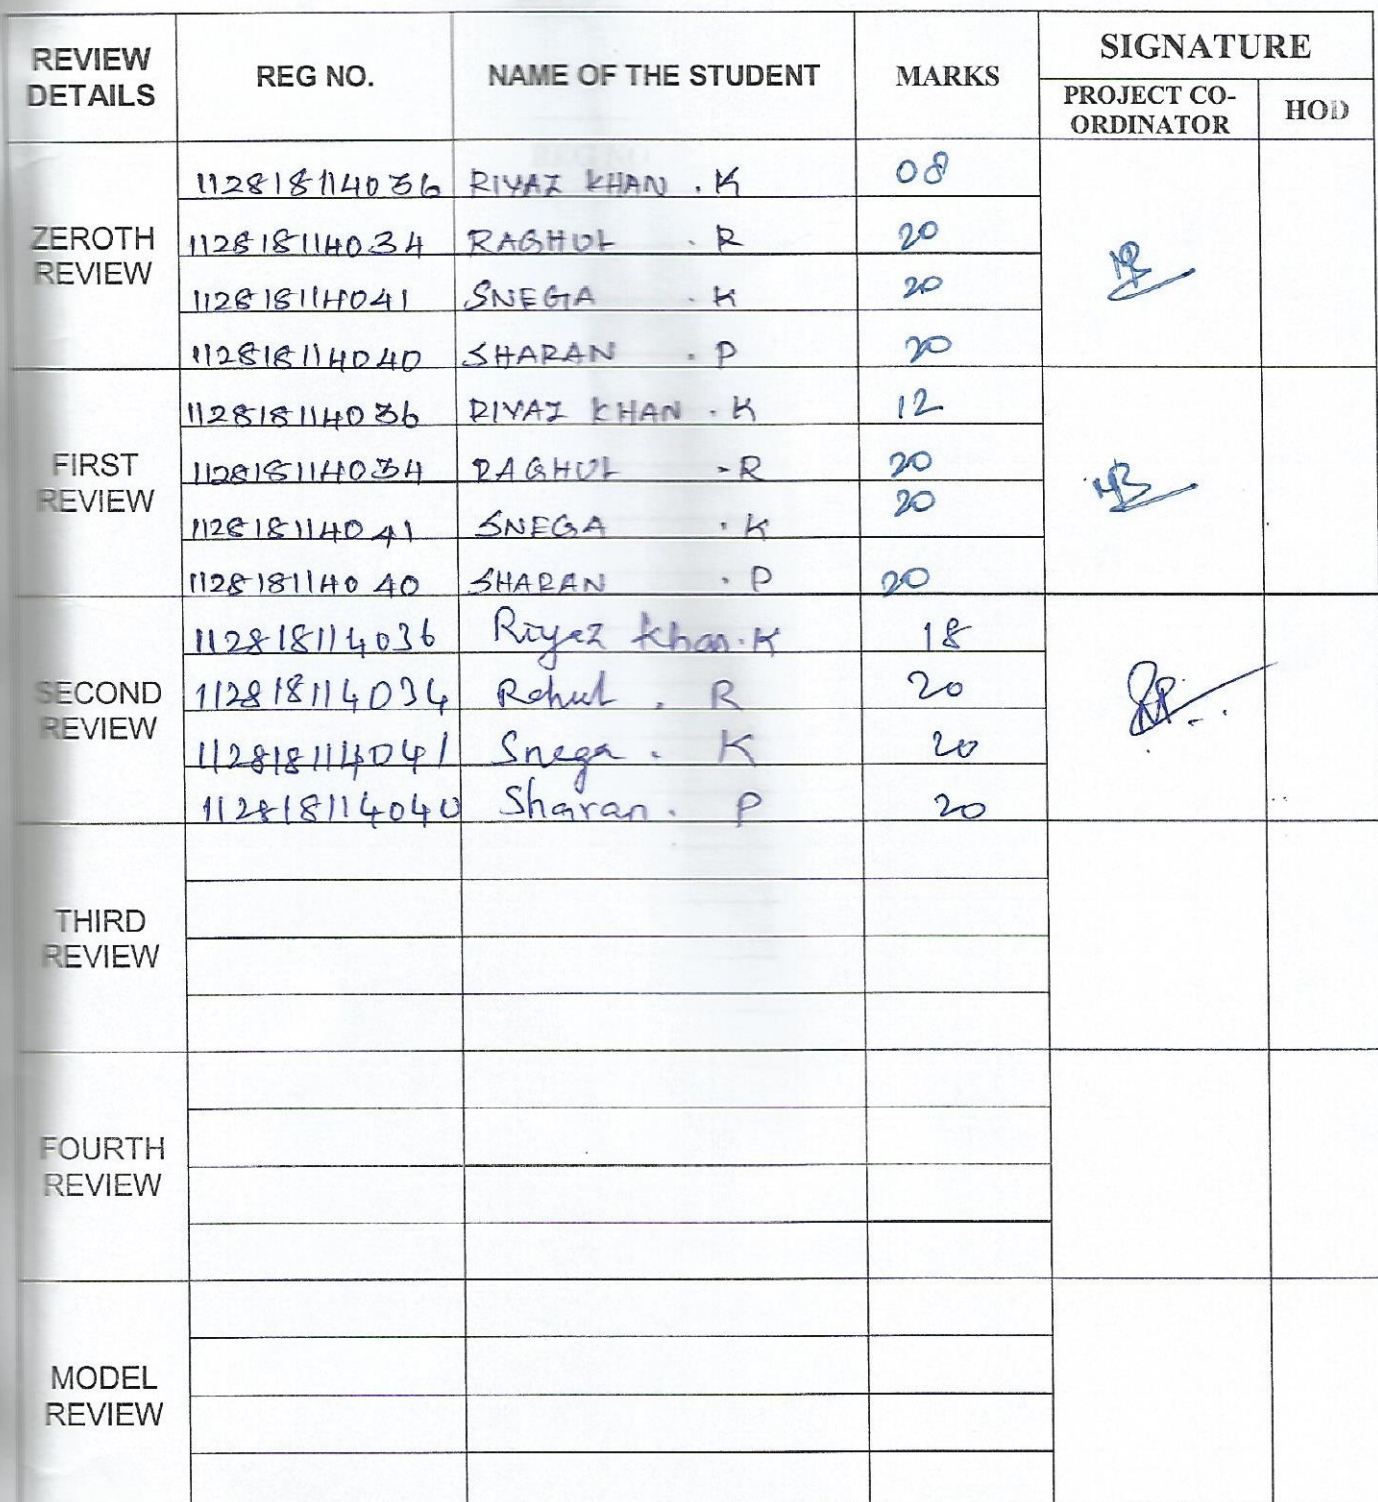 REVIEW DETAILS REG NO. NAME OF THE STUDENT MARKS SIGNATURE
PROJECT CO-ORDINATOR HOD
ZEROTH REVIEW
112818114036 RIYAZ KHAN . K 08
112818114034 RAGHUL . R 20
112818114041 SNEGA . K 20
112818114040 SHARAN . P 20
FIRST REVIEW
112818114036 RIYAZ KHAN . K 12
112818114034 RAGHUL . R 20
112818114041 SNEGA . K 20
112818114040 SHARAN . P 20
SECOND REVIEW
112818114036 Riyaz Khan . K 18
112818114034 Rahul . R 20
112818114041 Snega . K 20
112818114040 Sharan . P 20
THIRD REVIEW
FOURTH REVIEW
MODEL REVIEW